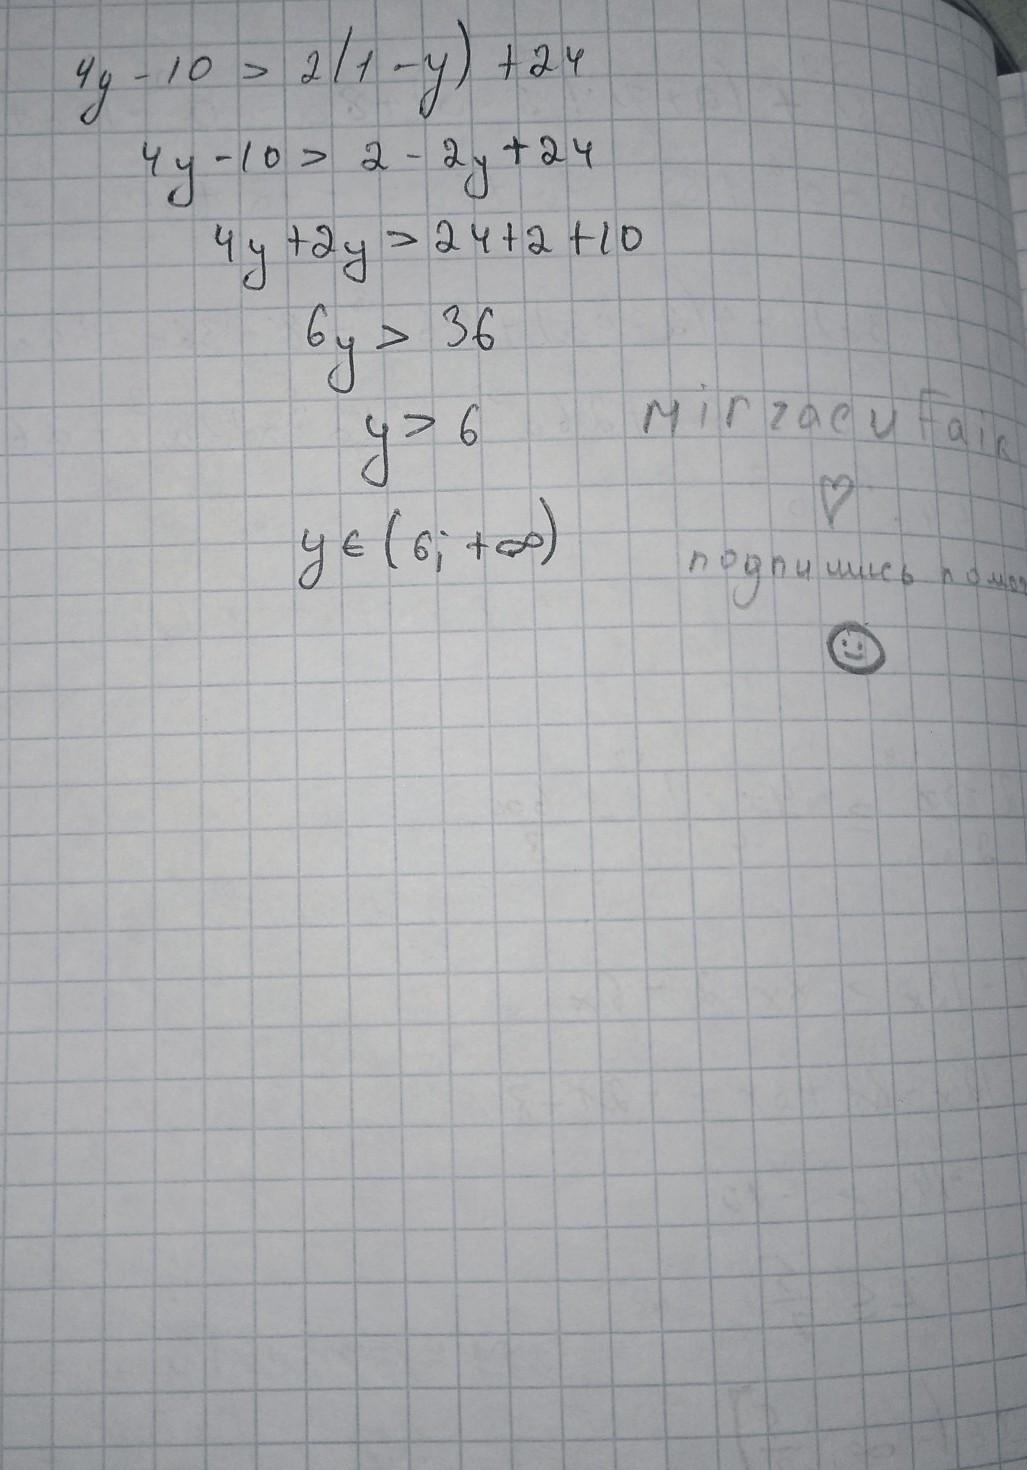 4y - 10 > 2(1 - y) + 24
4y - 10 > 2 - 2y + 24
4y + 2y > 24 + 2 + 10
6y > 36
y > 6
y ∈ (6; +∞)
Mirzaev Faik
♡
подпишись